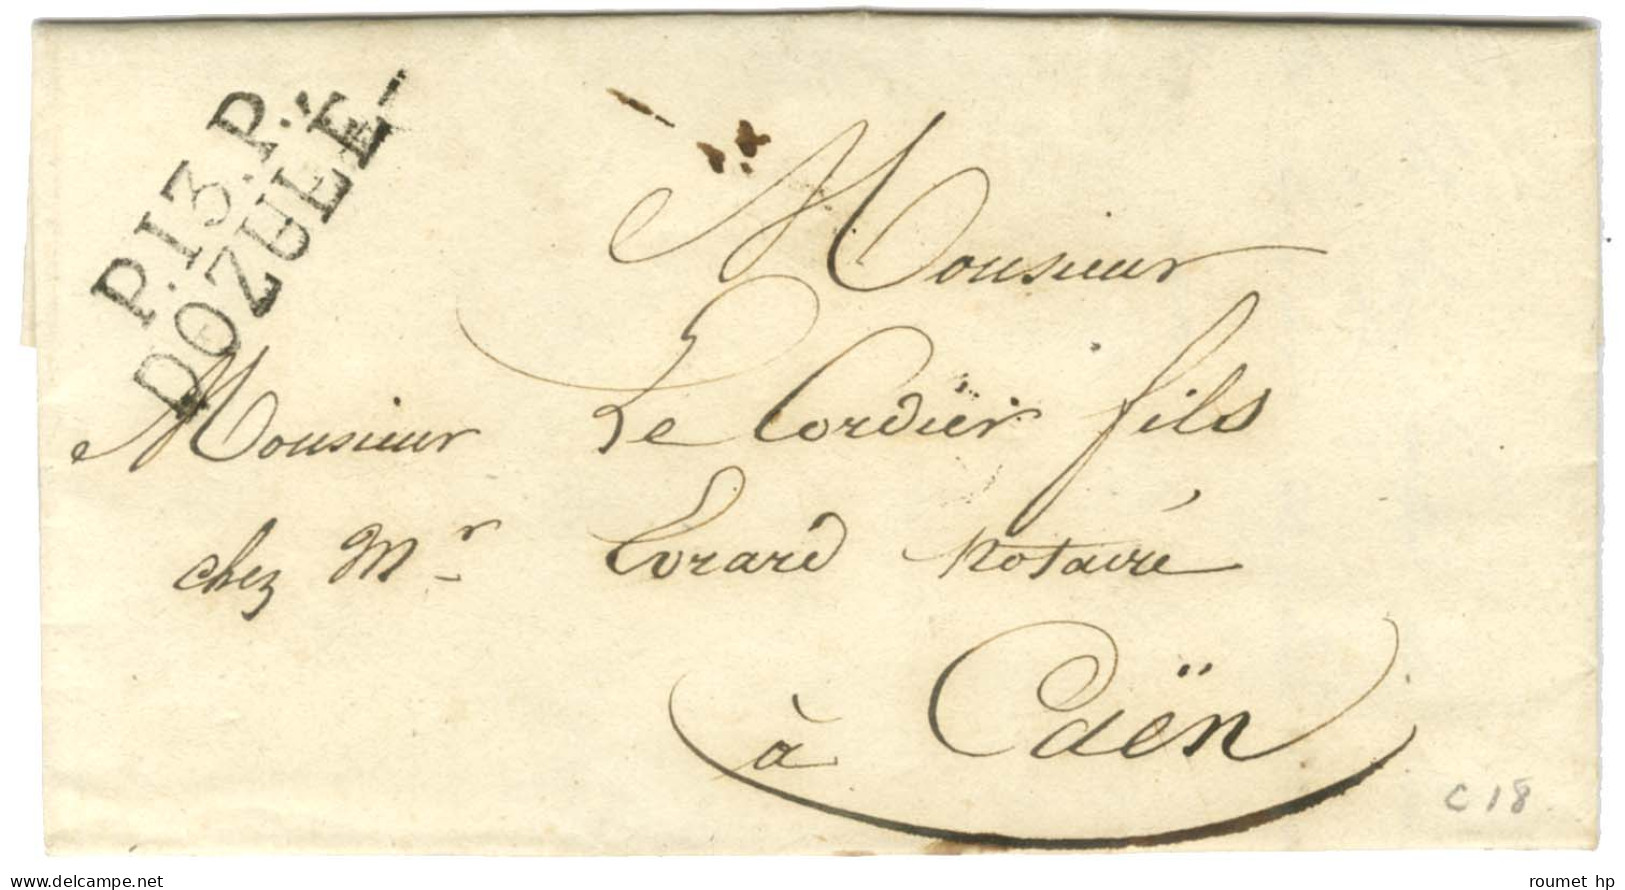 P.13.P.
DOZULÉ
Monsieur
Monsieur Le Cordier fils
chez Mr Evrard notaire
à Caën
C 18
delcampe.net
roumet hp